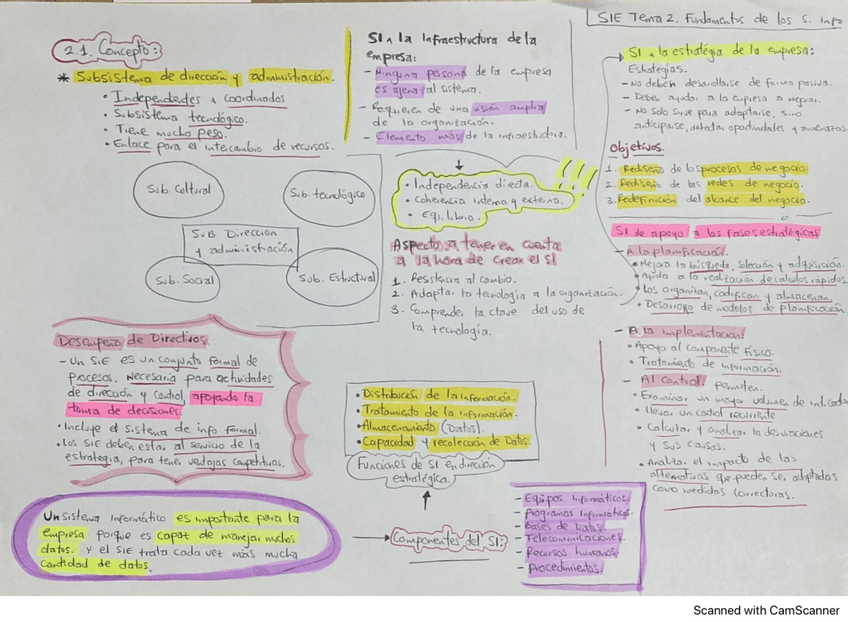 SIE Tema 2. Fundamentos de los S. Info
2.1. Concepto:
* Subsistema de dirección y administración.
• Independientes y coordinados
• Subsistema tecnológico.
• Tiene mucho peso.
• Enlace para el intercambio de recursos.
Sub. Cultural
Sub. tecnológico
Sub Dirección
y administración
Sub. Social
Sub. Estructural
Desempeño de Directivos
- Un SIE es un conjunto formal de
procesos. Necesaria para actividades
de dirección y control, apoyando la
toma de decisiones.
• Incluye el sistema de info formal.
• Los SIE deben estar al servicio de la
estrategia, para tener ventajas competitivas.
Un sistema informático es importante para la
empresa porque es capaz de manejar muchos
datos. y el SIE trata cada vez más mucha
cantidad de datos.
SI y la infraestructura de la
empresa:
- Ninguna persona de la empresa
es ajena al sistema.
- Requieren de una visión amplia
de la organización.
- Elemento más de la infraestructura.
• Independencia directa.
• Coherencia interna y externa.
• Equilibrio.
Aspecto a tener en cuenta
a la hora de crear el SI
1. Resistencia al cambio.
2. Adaptar la tecnología a la organización.
3. Comprender la clave del uso de
la tecnología.
• Distribución de la información.
• Tratamiento de la información.
• Almacenamiento (Datos).
• Capacidad y recolección de Datos.
Funciones de SI en dirección
estratégica.
Componentes del SI:
- Equipos informáticos
- Programas informáticos.
- Bases de Datos
- Telecomunicaciones.
- Recursos humanos
- Procedimientos
SI y la estratégia de la empresa:
Estrategias.
- No deben desarrollarse de forma pasiva.
- Deben ayudar a la empresa a mejorar.
- No solo sirve para adaptarse, sino
anticiparse, detectar oportunidades y amenazas
Objetivos.
1. Rediseño de los procesos de negocio.
2. Rediseño de las redes de negocio.
3. Redefinición del alcance del negocio.
SI de apoyo a las fases estratégicas
- A la planificación.
• Mejora la búsqueda, selección y adquisición.
• Ayuda a la realización de calculos rápidos.
• Los organizan, codifican y almacenan.
• Desarrollo de modelos de planificación
- A la implementación:
• Apoyo al componente físico.
• Tratamiento de información.
- Al control: permiten.
• Examinar un mayor volumen de indicadores
• llevar un control recurrente
• Calcular y analizar la desviaciones
y sus causas.
• Analizar el impacto de las
alternativas que pueden ser adoptadas
como medidas correctoras.
Scanned with CamScanner